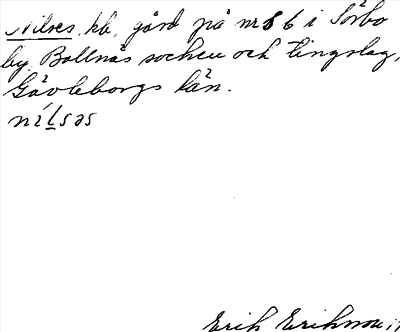 Nilses, kb, gård på nr 6 i Sörbo
by, Bollnäs socken och tingslag,
Gävleborgs län.
nílsəs
Erik Eriksson